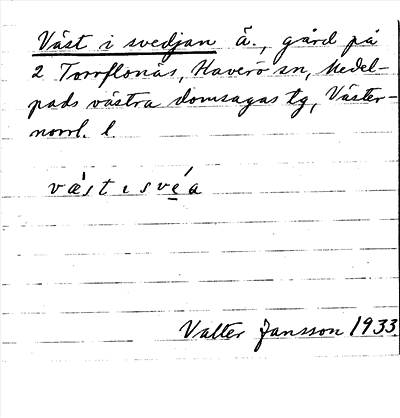 Väst i svedjan ä., gård på
2 Torrflonäs, Haverö sn, Medel-
pads västra domsagas tg, Väster-
norrl. l.
væ̀st ı své̱a
Valter Jansson 1933.